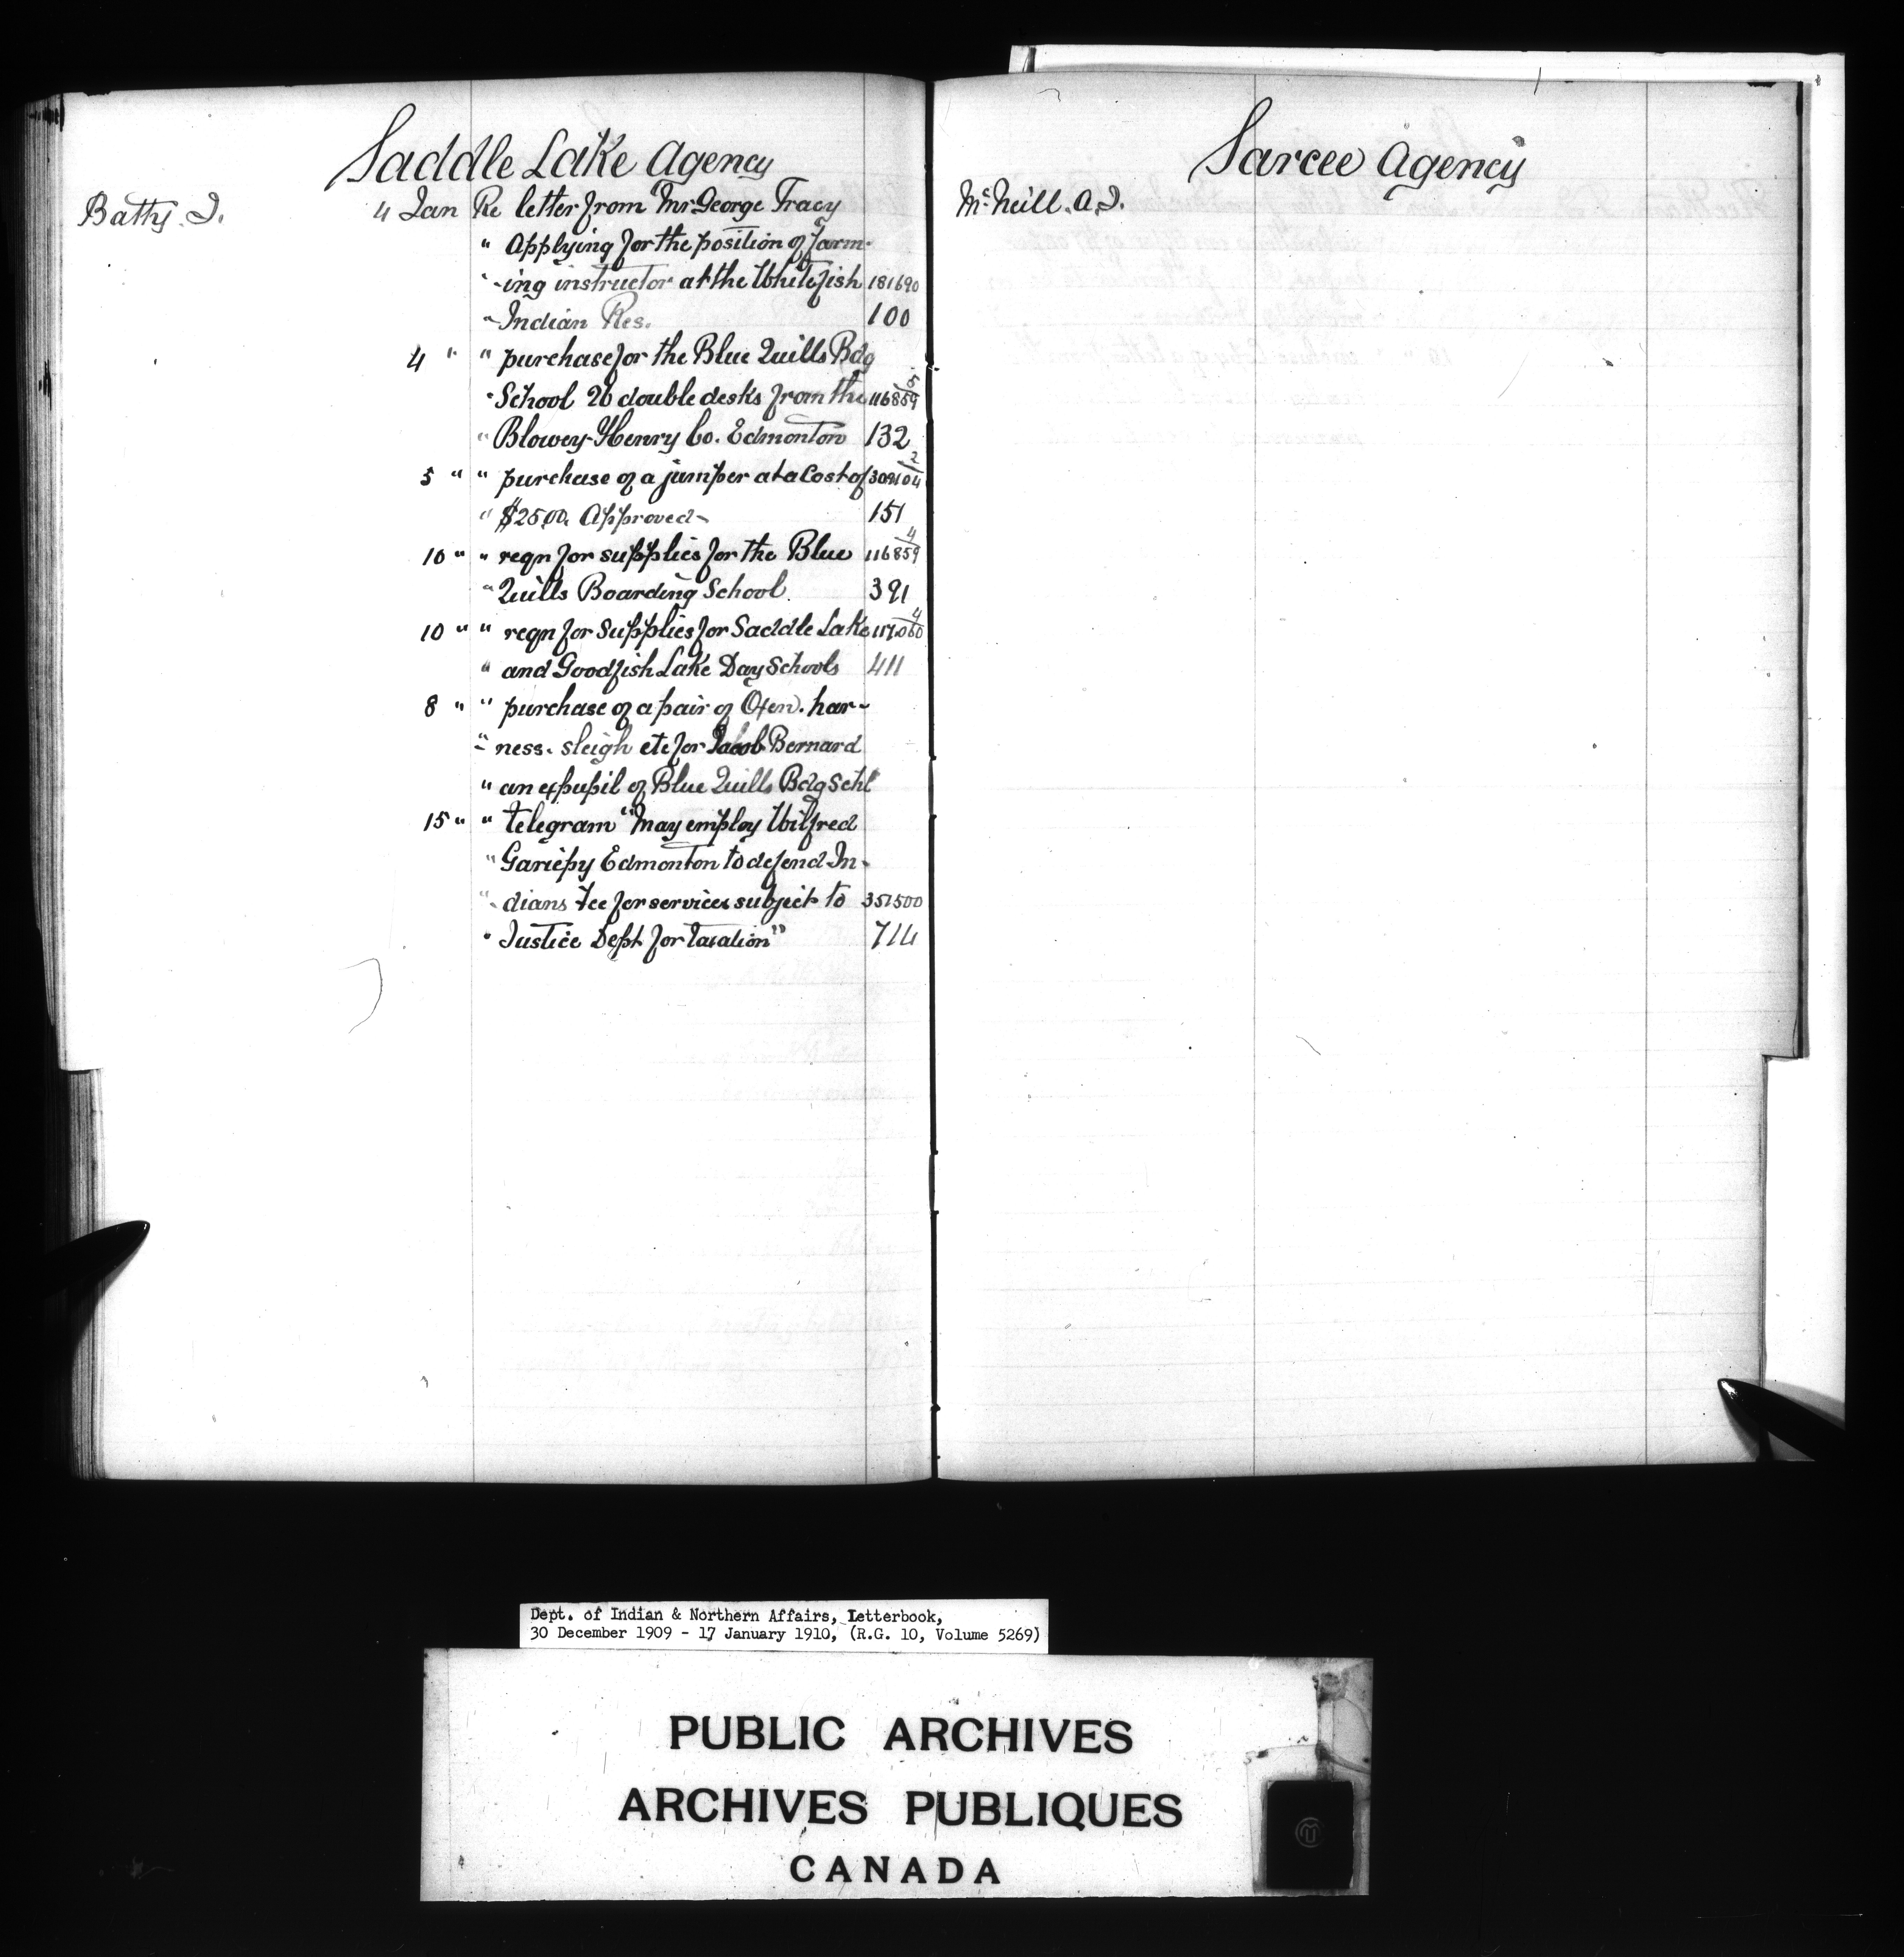 Saddle Lake Agency
Batty. J.
4 Jan Re letter from "Mr George Tracy
" Applying for the position of farm-
" -ing instructor at the Whitefish 181690
" Indian Res. 100
4 " " purchase for the Blue Quills Bdg
" School 26 double desks from the 116859/5
" Blowey-Henry Co. Edmonton 132
5 " " purchase of a jumper at a cost of 309104/2
" $25.00. Approved - 151
10 " " reqn for supplies for the Blue 116859/4
" Quills Boarding School. 391
10 " " reqn for Supplies for Saddle Lake 117060/4
" and Goodfish Lake Day Schools 411
8 " " purchase of a pair of Oxen. har-
" - ness. sleigh etc for Jacob Bernard
" an expupil of Blue Quills Bdg Schl
15 " " telegram "May employ Wilfred
" Gariepy Edmonton to defend In-
" - dians fee for services subject to 351500
" Justice Dept for taxation" 714
Sarcee Agency
McNeill. A. J.
Dept. of Indian & Northern Affairs, Letterbook,
30 December 1909 - 17 January 1910, (R.G. 10, Volume 5269)
PUBLIC ARCHIVES
ARCHIVES PUBLIQUES
CANADA